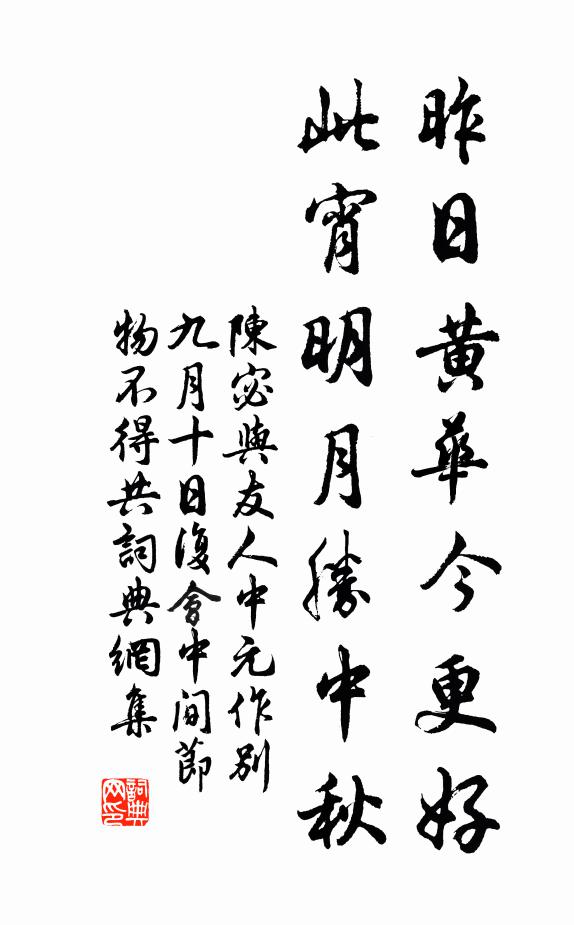 昨日黃華今更好
此宵明月勝中秋
陳宓與友人中元作別
九月十日復會中間節
物不得共詞典網集
詞典网印